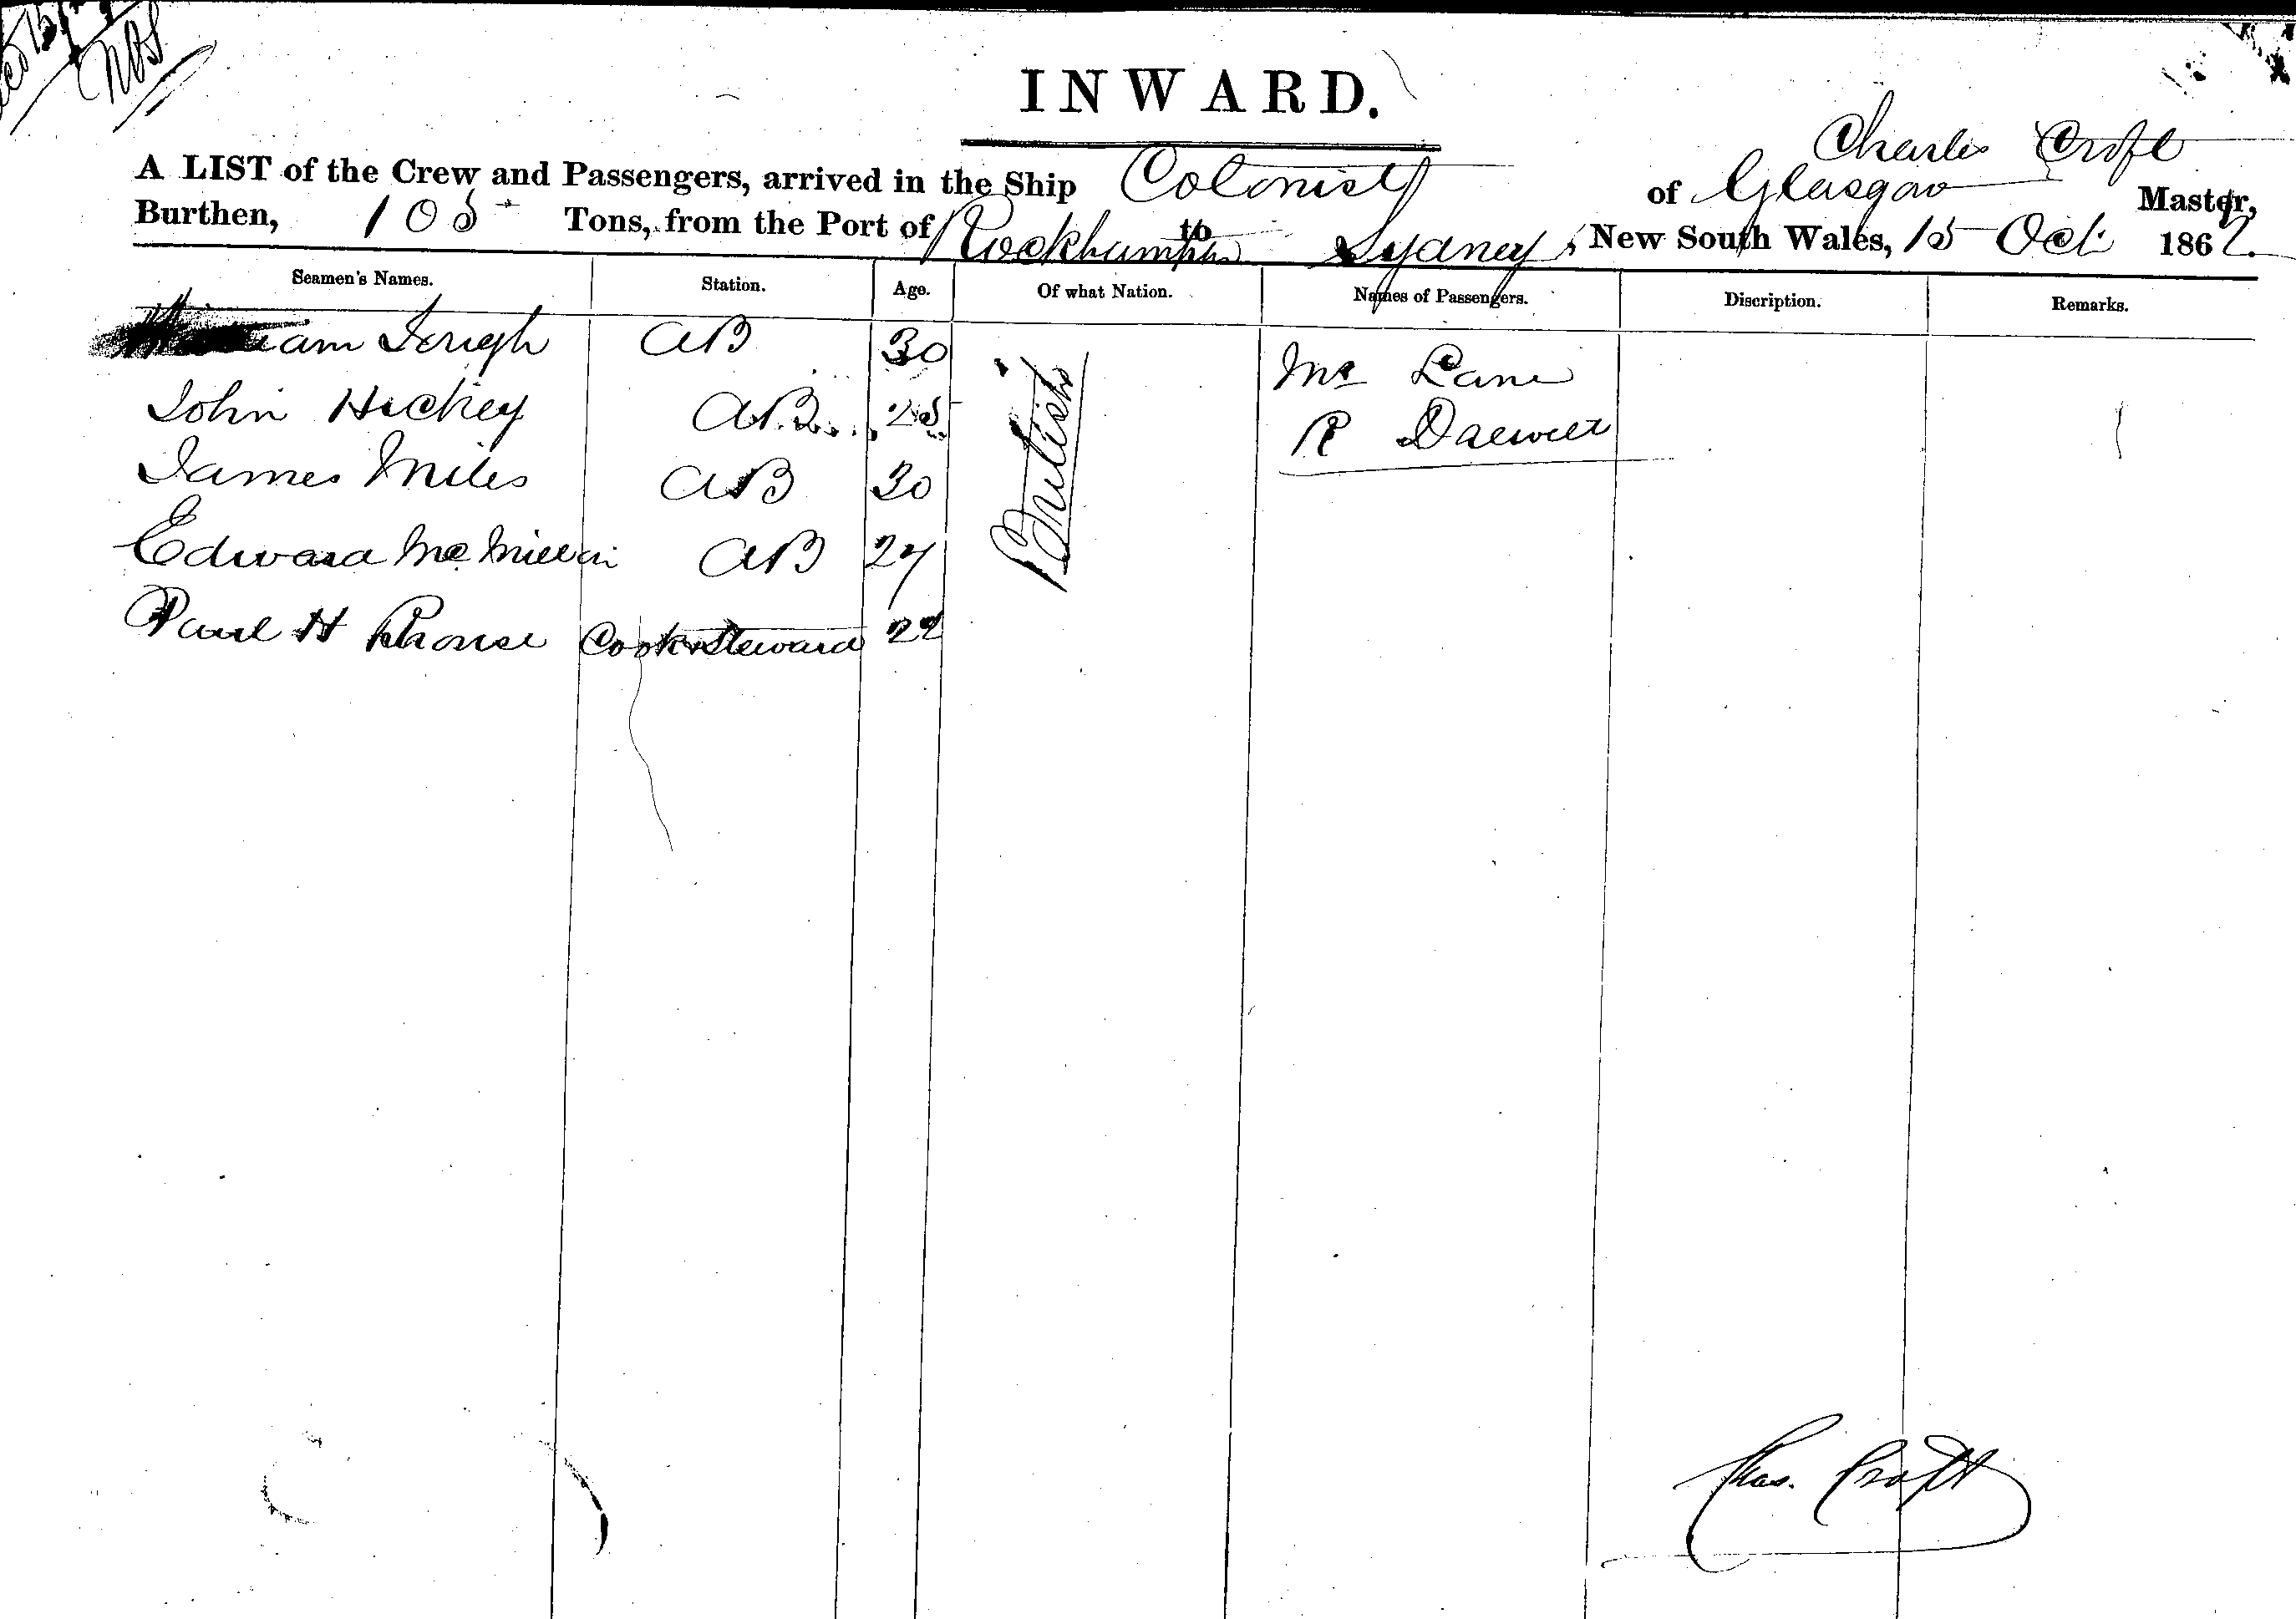 INWARD.
Charles Croft
A LIST of the Crew and Passengers, arrived in the Ship Colonist of Glasgow Master,
Burthen, 105 Tons, from the Port of Rockhampton to Sydney, New South Wales, 15 Oct. 1862.
Seamen's Names. Station. Age. Of what Nation. Names of Passengers. Discription. Remarks.
William Tough AB 30 British Mr Lane
John Hickey AB 25 R
James Miles AB 30
Edward McMillan AB 24
Paul H Cook & Steward 22
Chas. Croft